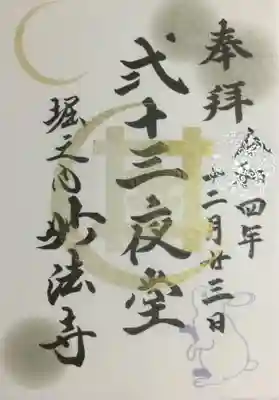 奉拝
令和四年
十二月廿三日
弐十三夜堂
堀之内妙法寺